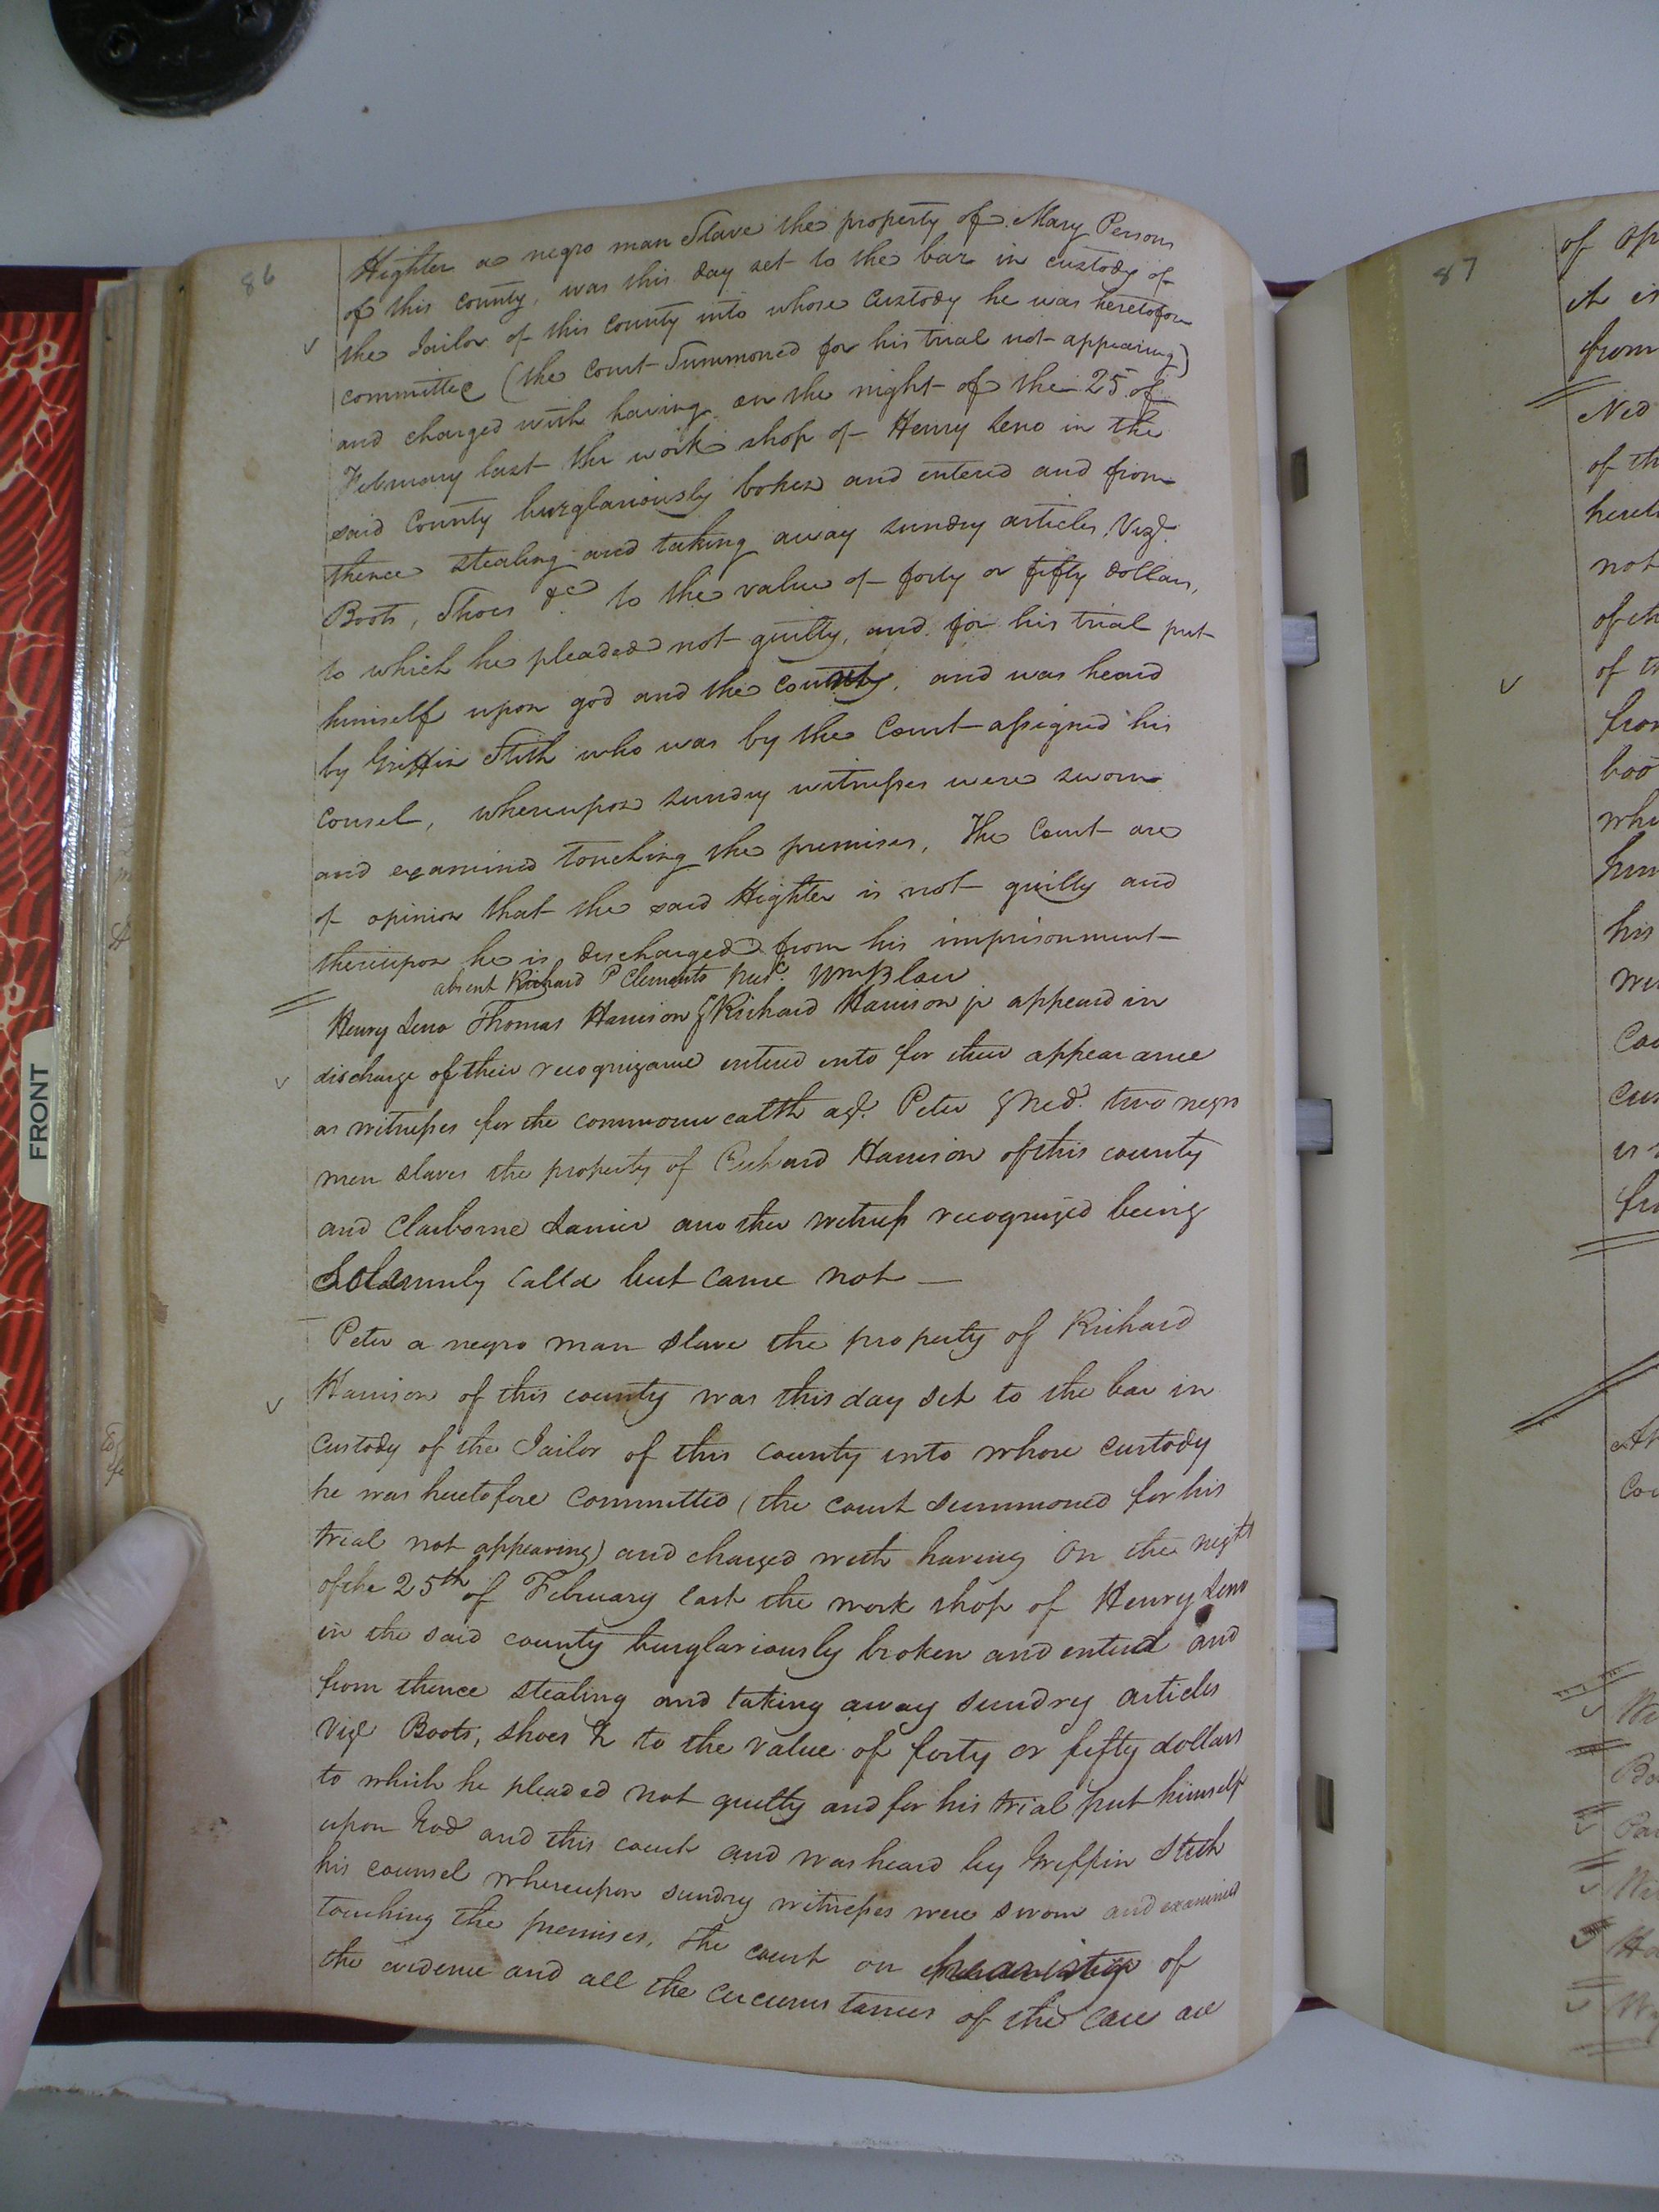 86
Highter a negro man Slave the property of Mary Persons
of this county, was this day set to the bar in custody of
the Jailor of this County into whose Custody he was heretofore
committee (the Court Summoned for his trial not appearing)
and charged with having on the night of the 25 of
February last the work shop of Henry Leno in the
said County burglariously boken and entered and from
thence stealing and taking away sundry articles Vizt.
Boots, Shoes &c to the value of forty or fifty dollars,
to which he pleaded not guilty, and for his trial put
himself upon god and the county, and was heard
by Griffin Stith who was by the Court assigned his
Counsel, whereupon sundry witnesses were sworn
and examined touching the premises, The Court are
of opinion that the said Highter is not guilty and
thereupon he is discharged from his imprisonment
absent Richard P Clements Wm Blow
Henry Leno Thomas Harrison & Richard Harrison jr appeard in
discharge of their recognizance entered into for their appearance
as witnesses for the commonwealth agt. Peter & Ned. two negro
men slaves the property of Richard Harrison of this county
and Claiborne Lanier another witness recognized being
Solemnly calld but came not —
Peter a negro man slave the property of Richard
Harrison of this county was this day set to the bar in
custody of the Jailor of this county into whose custody
he was heretofore committed (the court summoned for his
trial not appearing) and charged with having On the night
of the 25th of February last the work shop of Henry Leno
in the said county burglariously broken and entered and
from thence stealing and taking away sundry articles
Viz Boots, shoes & to the value of forty or fifty dollars
to which he pleaded not guilty and for his trial put himself
upon God and this court and was heard by Griffin Stith
his counsel whereupon sundry witnesses were sworn and examined
touching the premises, the court on of
the evidence and all the circumstances of the case are
FRONT
87
of op
it is
from
Ned
of th
heret
not
of th
of t
fro
boo
whi
him
his
we
Cou
cus
is
fr